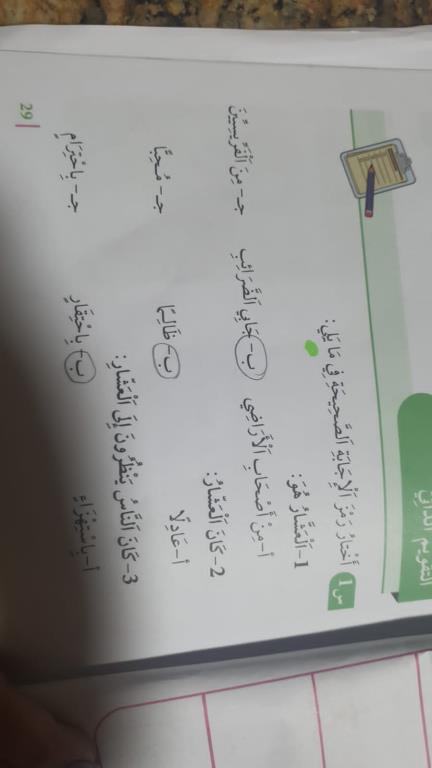 التقويم الذاتي
س1 أَخْتَارُ رَمْزَ الْإِجَابَةِ الصَّحِيحَةِ فِي مَا يَلِي:
1- الْعَشَّارُ هُوَ:
أ- مِنْ أَصْحَابِ الْأَرَاضِي ب- جَابِي الضَّرَائِبِ جـ- مِنَ الْفَرِّيسِيِّينَ
2- كَانَ الْعَشَّارُ:
أ- عَادِلًا ب- ظَالِمًا جـ- مُحِبًّا
3- كَانَ النَّاسُ يَنْظُرُونَ إِلَى الْعَشَّارِ:
أ- بِاسْتِهْزَاءٍ ب- بِاحْتِقَارٍ جـ- بِاحْتِرَامٍ
29